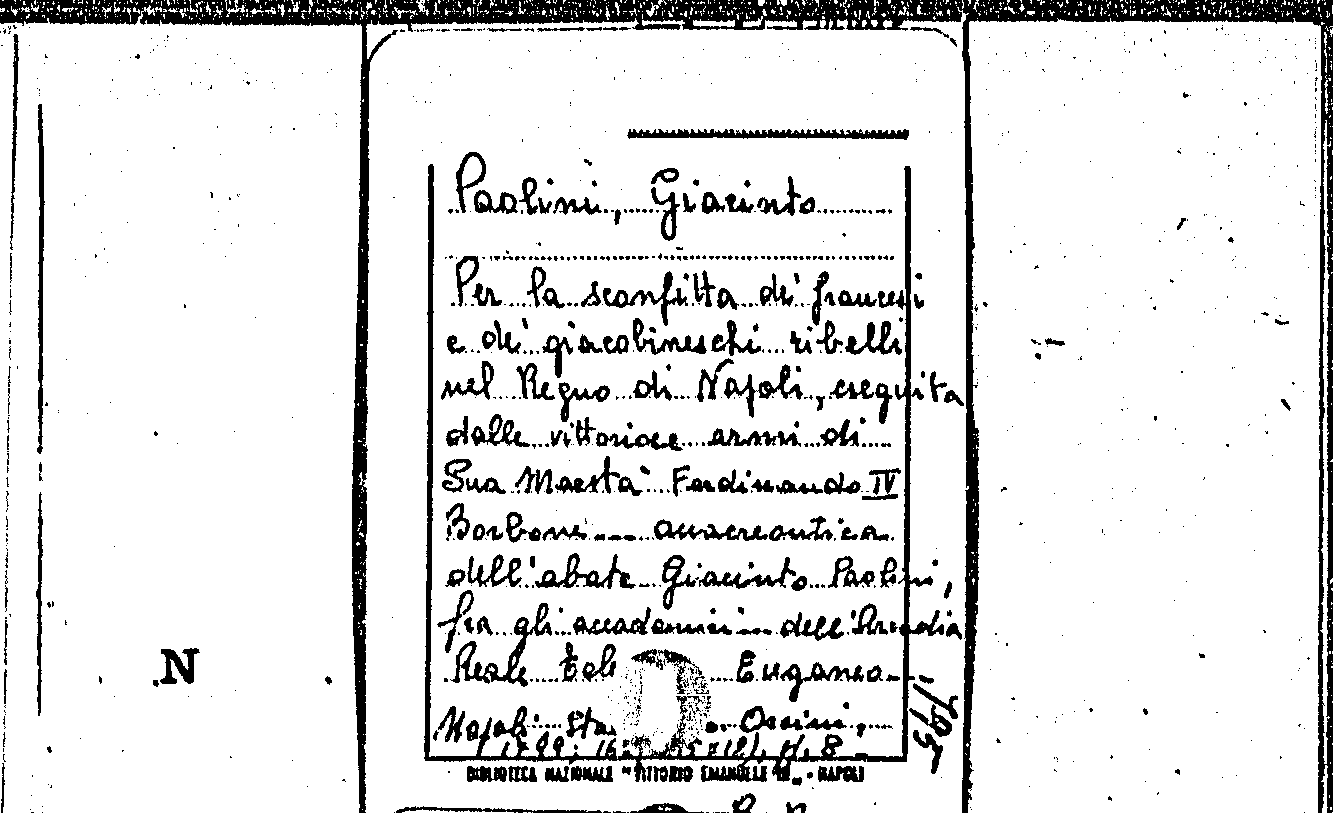 Paolini, Giacinto
Per la sconfitta de' francesi
e de' giacobineschi ribelli
nel Regno di Napoli, eseguita
dalle vittoriose armi di
Sua Maestà Ferdinando IV
Borbone... anacreontica
dell'abate Giacinto Paolini,
fra gli accademici... dell'Arcadia
Reale Euganeo...
Napoli Orsini,
1799; 8
BIBLIOTECA NAZIONALE "VITTORIO EMANUELE III" - NAPOLI
N